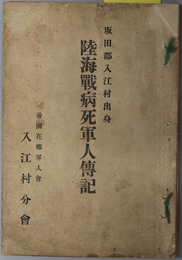 坂田郡入江村出身
陸海戰病死軍人傳記
帝國在鄕軍人會
入江村分會